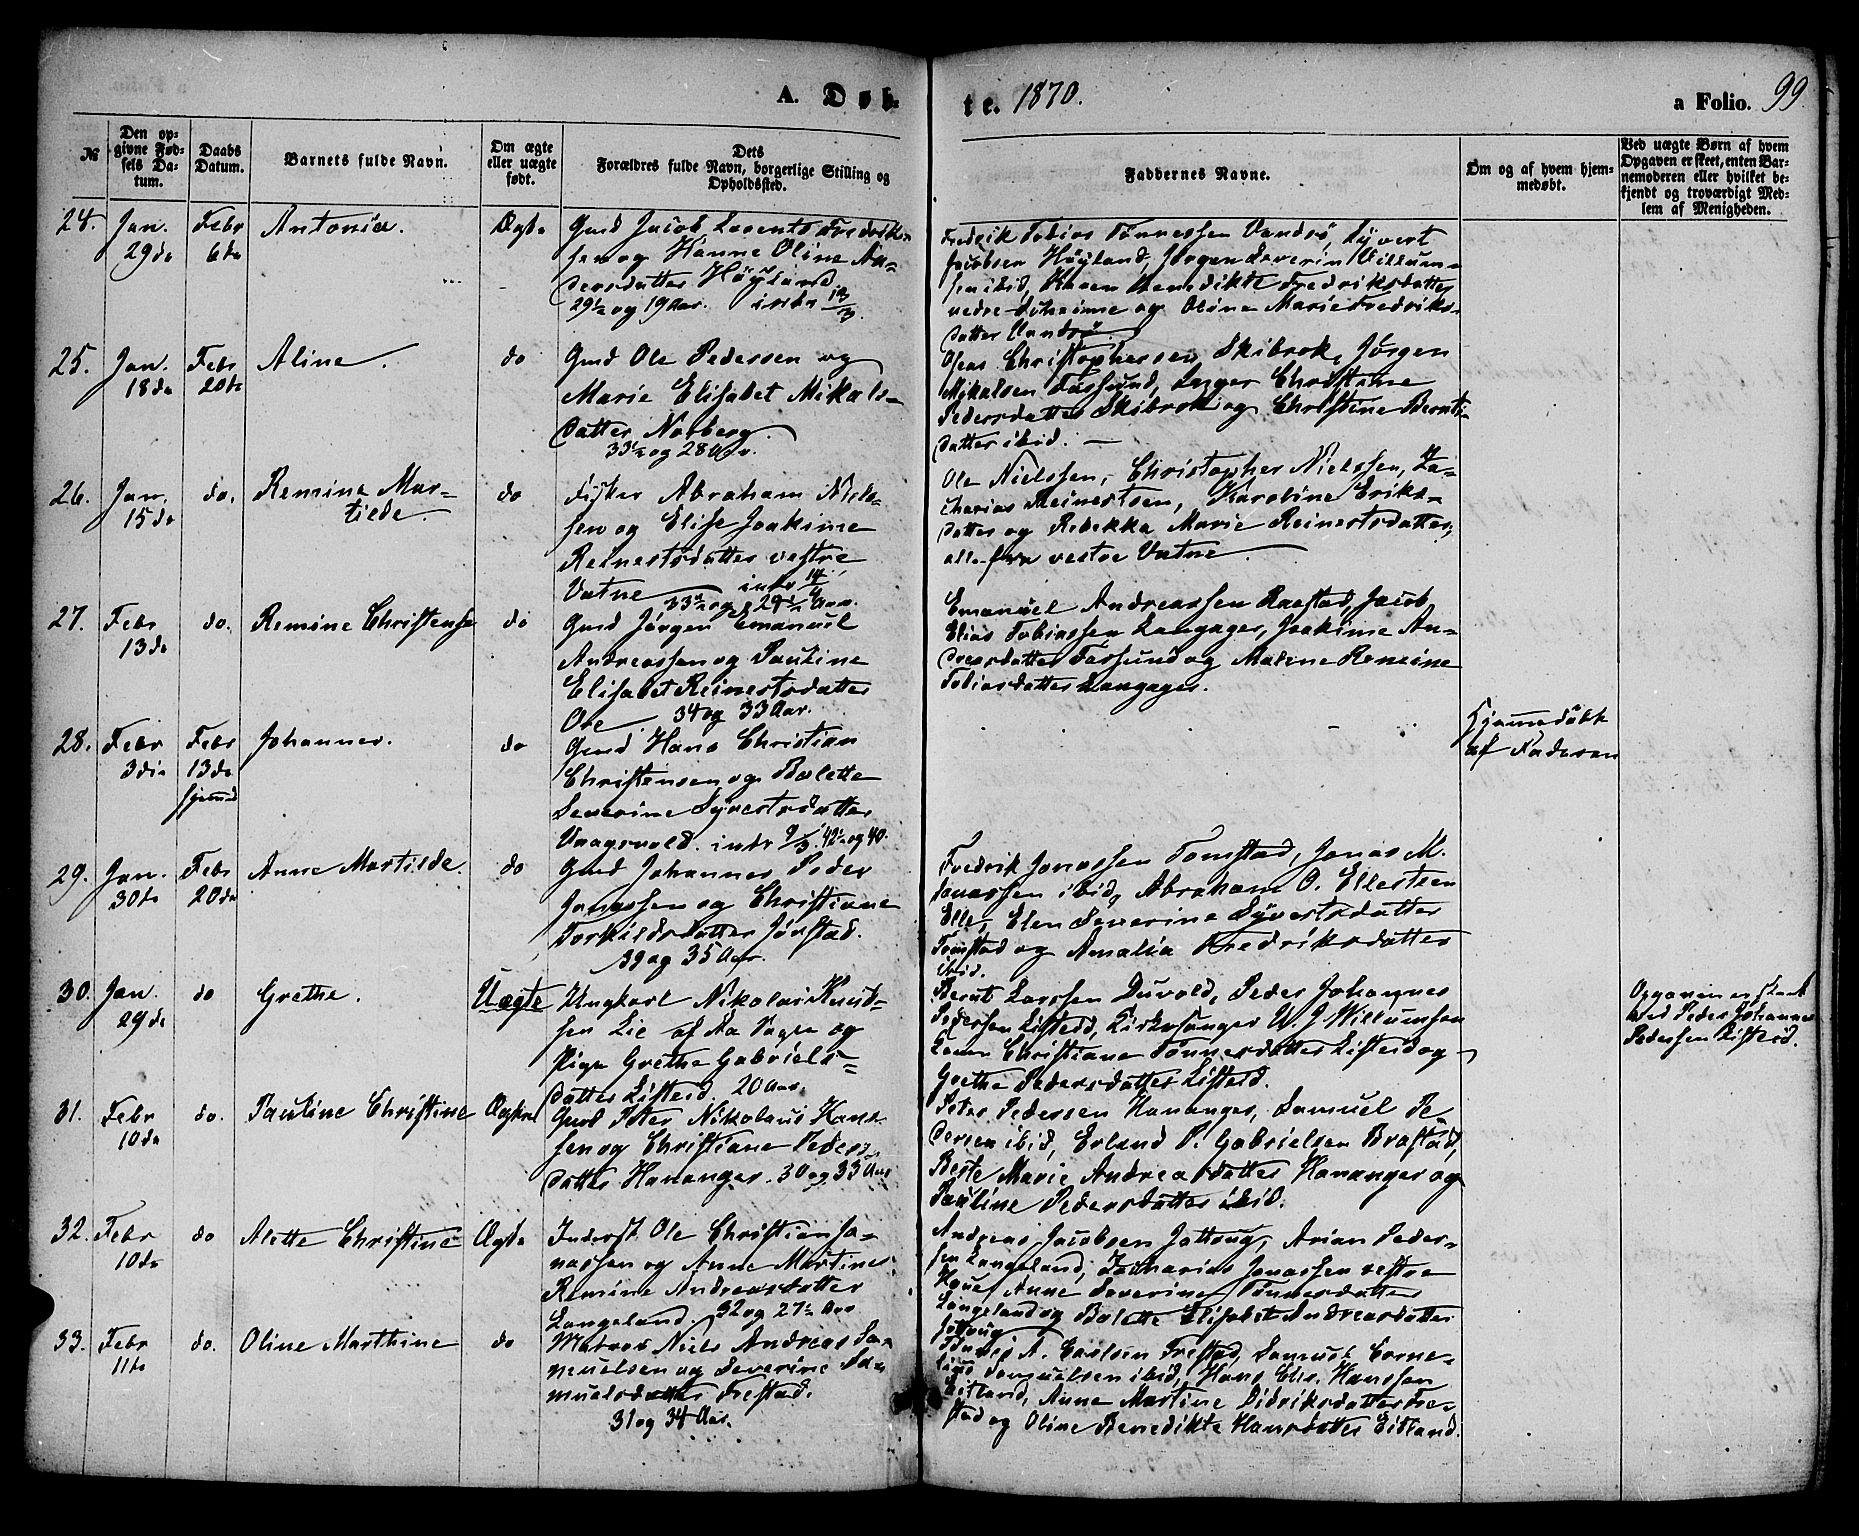 A. Døb-
te. 1870.
a Folio. 99
№
Den op-
givne Fød-
sels Da-
tum.
Daabs
Datum.
Barnets fulde Navn.
Om ægte
eller uægte
født.
Dets
Forældres fulde Navn, borgerlige Stilling og
Opholdssted.
Faddernes Navne.
Om og af hvem hjem-
medøbt.
Ved uægte Børn af hvem
Opgaven er skeet, enten Bar-
nemoderen eller hvilket be-
kjendt og troværdigt Med-
lem af Menigheden.
24. Jan. 29de
Febr 6te
Antonia.
Ægte
Gmd Jacob Lorents Fredrik-
sen og Hanne Oline An-
dersdatter Høyland
29½ og 19 Aar. intr 13/3.
Fredrik Tobias Tønnessen Vandsø, Syvert
Jacobsen Høyland, Jørgen Severin Villum-
sen ibid, Karen Benedikte Fredriksdatter
nedre og Oline Marie Fredriks-
datter Vandsø
25. Jan. 18de
Febr 20de
Aline.
do
Gmd Ole Pedersen og
Marie Elisabet Mikals-
datter Norberg.
33½ og 28 Aar.
Oseas Christophersen Skibrok, Jørgen
Mikalsen Farsund, Inger Christine
Pedersdatter Skibrok og Christine Bernts-
datter ibid.
26. Jan. 15de
do.
Remine Mar-
tilde.
do
Fisker Abraham Niels-
sen og Elise Joakime
Reinertsdatter vestre
Vatne intr
33½ og 29½ Aar.
Ole Nielssen, Christopher Nielssen, Za-
charias Reinertsen, Karoline Eriks-
datter og Rebekka Marie Reinertsdatter,
alle fra vestre Vatne
27. Febr 13de
do.
Remine Christense
do
Gmd Jørgen Emanuel
Andreassen og Pauline
Elisabet Reinertsdatter
Ore 34 og 33 Aar.
Emanuel Andreassen Raastad, Jacob
Elias Tobiassen Langager, Joakime An-
dreasdatter Farsund og Maline Remine
Tobiasdatter Langager.
28. Febr 3die
Febr 13de
hjemmd
Johannes.
do
Gmd Hans Christian
Christensen og Bolette
Severine Syvertsdatter
Vaagsvold. intr 9/3 42½ og 40.
Hjemmedøbt
af Faderen
29. Jan. 30te
Febr 20de
Anne Martilde.
do
Gmd Johannes Peder
Jonassen og Christiane
Torkildsdatter Jørstad.
39 og 35 Aar.
Fredrik Jonassen Tomstad, Jonas M.
Jonassen ibid, Abraham O. Ellestsen
Elle, Elen Severine Syvertsdatter
Tomstad og Amalia Fredriksdatter
ibid.
30. Jan. 29de
do
Grethe.
Uægte
Ungkarl Nikolai Knud-
sen Lie af Aa Sogn og
Pige Grethe Gabriels-
datter Listeid. 20 Aar.
Bernt Larssen Duvold, Peder Johannes
Pedersen Listeid, Kirkesanger W. J Willumsen
Christiane Tønnesdatter Listeid og
Grethe Pedersdatter Listeid.
Opgaven er skeet
ved Peder Johannes
Pedersen Listeid.
31. Febr 10de
do.
Pauline Christine
Ægte
Gmd Peter Nikolaus Hans-
sen og Christiane Peders-
datter Hananger. 30 og 33 Aar
Peter Pedersen Hananger, Samuel Pe-
dersen ibid, Erland P. Gabrielsen Brastad,
Berte Marie Andreasdatter Hananger og
Pauline Pedersdatter ibid.
32. Febr 10de
do
Alette Christine
Ægte
Inderst Ole Christian Jo-
nassen og Anne Martine
Remine Andreasdatter
Langeland 32 og 27½ Aar
Andreas Jacobsen Jøttoug, Arian Peder-
sen Langeland, Zacharias Jonassen vestre
Houe, Anne Severine Tønnesdatter
Langeland og Bolette Elisabet Andreasdatter
Jøttoug
33. Febr 11te
do.
Oline Marthine
do
Matros Niels Andreas Sa-
muelsen og Severine Sa-
muelsdatter Frestad.
31 og 34 Aar.
A. Carlsen Frestad, Samuel Corne-
lius Samuelsen ibid, Hans Chr. Hanssen
Eitland, Anne Martine Didriksdatter Fre-
stad og Oline Benedikte Hansdatter Eitland.